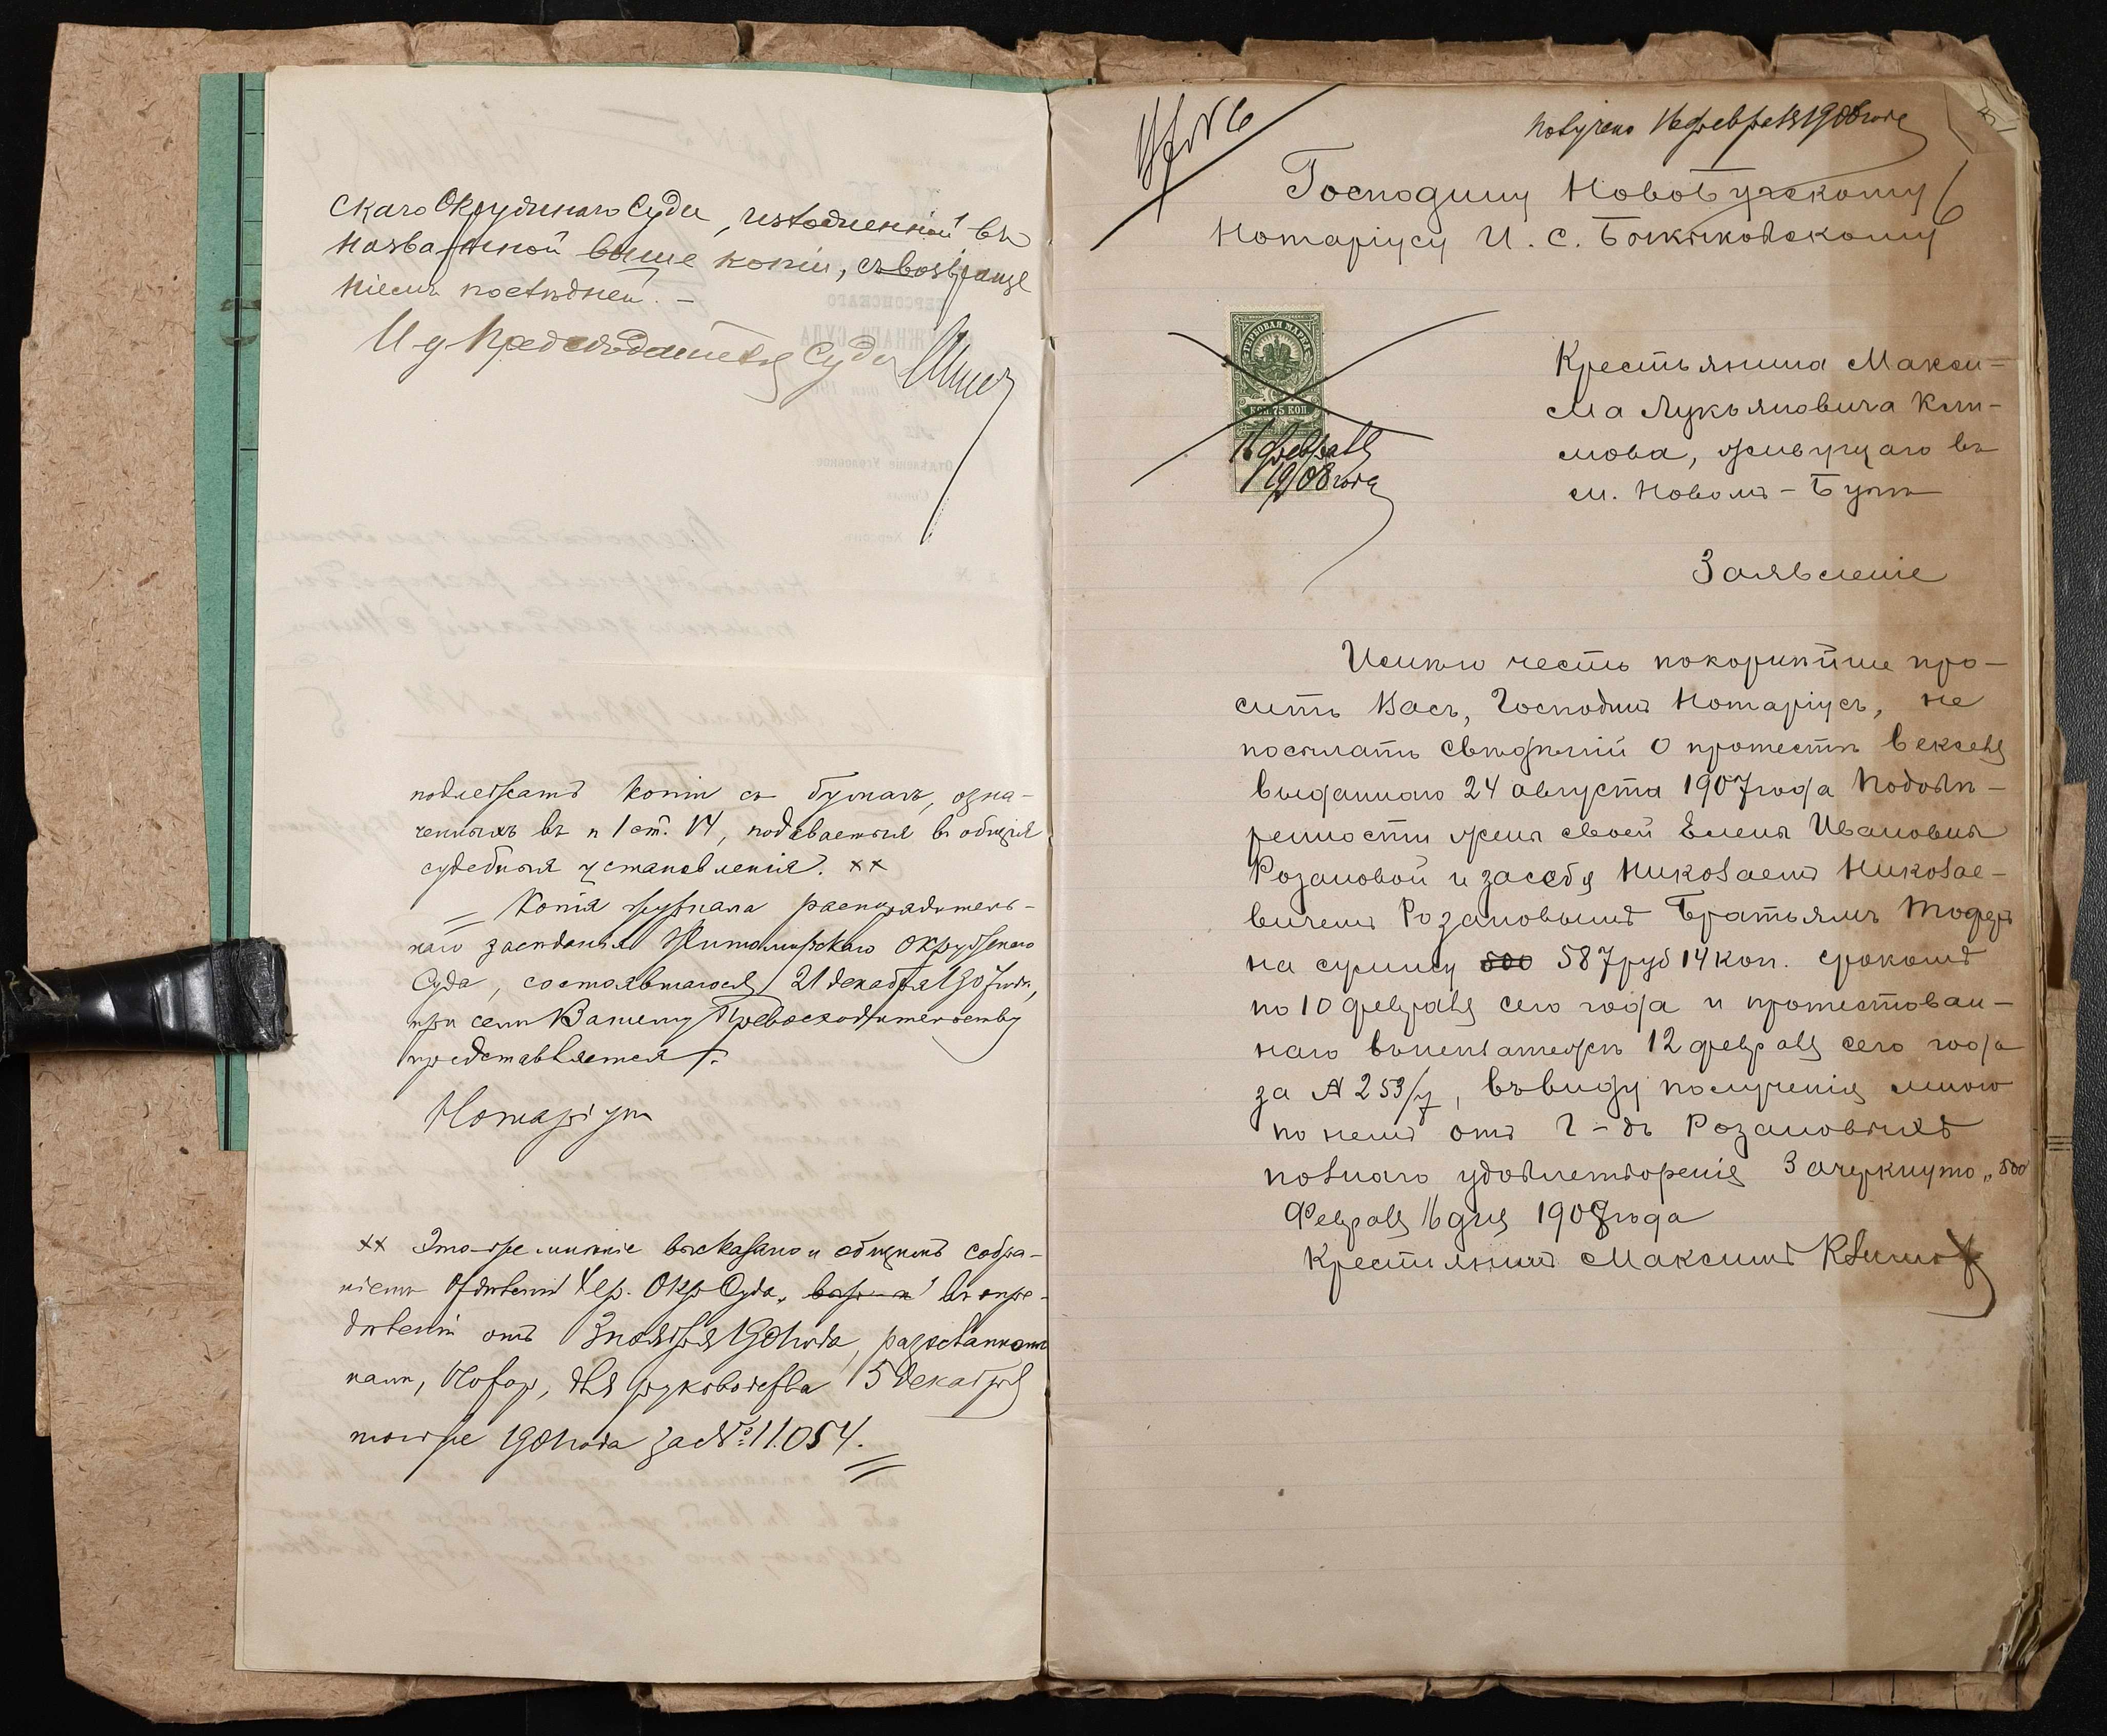 скаго Окружнаго Суда, изложенной въ
названной выше копіи, съ возвраще
ніемъ послѣдней. –
И д Предсѣдателя Суда
подлежатъ копіи съ бумагъ, озна-
ченныхъ въ п 1 ст. 14, подаваемыя въ общія
судебныя установленія. ××
Копія журнала распорядитель-
наго засѣданія Житомирскаго Окружнаго
Суда, состоявшагося 21 декабря 1907 года,
при семъ Вашему Превосходительству
представляется.
Нотаріусъ
×× Это-же мнѣніе высказано и общимъ собра-
ніемъ Отдѣленій Хер. Окр Суда, въ опре-
дѣленіи отъ 3 ноября 1901 года, разосланномъ
намъ, Нотар, для руководства 5 декабря
того же 1901 года за № 11.054.
Получено 16 февраля 1908 года
№ 6
Господину Новобугскому
Нотаріусу И. С.
6
ГЕРБОВАЯ МАРКА
КОП. 75 КОП.
16 февраля
1908 года
Крестьянина Макси-
ма Лукьяновича Кли-
мова, живущаго въ
м. Новомъ-Бугѣ
Заявленіе
Имѣю честь покорнѣйше про-
сить Васъ, Господинъ Нотаріусъ, не
посылать свѣдѣній о протестѣ векселя
выданнаго 24 августа 1907 года по довѣ-
ренности жены своей Елены Ивановны
Розановой и за себя Николаемъ Николае-
вичемъ Розановымъ Братьямъ
на сумму 500 587 руб 14 коп. срокомъ
по 10 февраля сего года и протестован-
наго 12 февраля сего года
за № 253/7, въ виду полученія мною
по немъ отъ г-дъ Розановыхъ
полнаго удовлетворенія Зачеркнуто „500
Февраля 16 дня 1908 года
Крестьянинъ Максимъ Климов